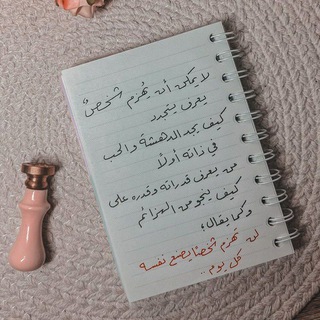 لا يمكن أن يُهزم شخصٌ
يعرف يتجدد
كيف يجد الدهشة والحب
في ذاته أولًا
من يعرف قدراته وقدره على
كيف ينجو من الهزائم
وكما يقال؛
لن تهزم شخصًا يصنع نفسه
كل يوم..